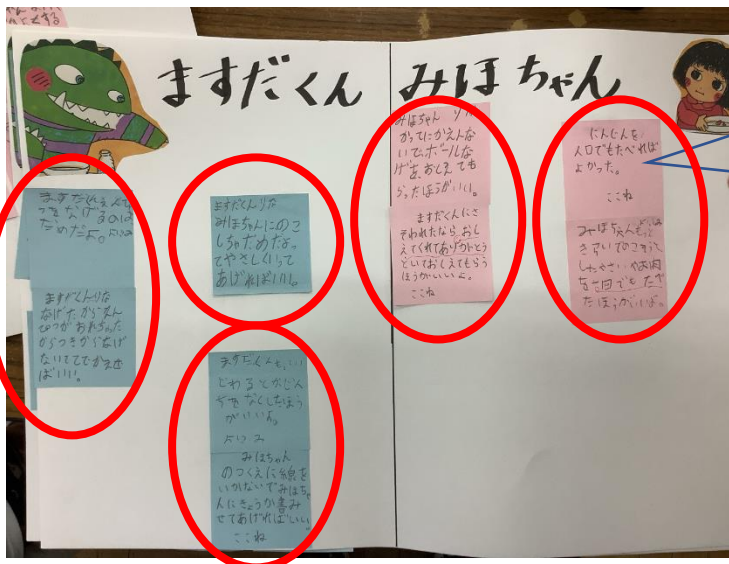 ますだくん
みほちゃん
つをなげるのは
だめだよ。
ますだくんりな
なげたからえん
ぴつがおれちゃった
からつぎからなげ
ないで
ばいい。
ますだくんりな
みほちゃんにのこ
しちゃだめだよっ
てやさしくいって
あげればいい。
ますだくん
じわるとか
をなくしたほう
がいいよ。
みほちゃん
のつくえに線を
かないでみほちゃ
んにきょうか書み
せてあげればいい。
ここね
みほちゃん
かってにかえんな
いで、ボールな
げを、おしえても
らったほうがいい。
ますだくんにさ
そわれたなら、おし
えてくれてありがとう
といておしえてもらう
ほうがいいよ。
ここね
にんじんを、
人口でもたべれば
よかった。
ここね
みほちゃん
きらいでのこそうと
した、やさいやお肉
を一口でもたべ
たほうがいいよ。